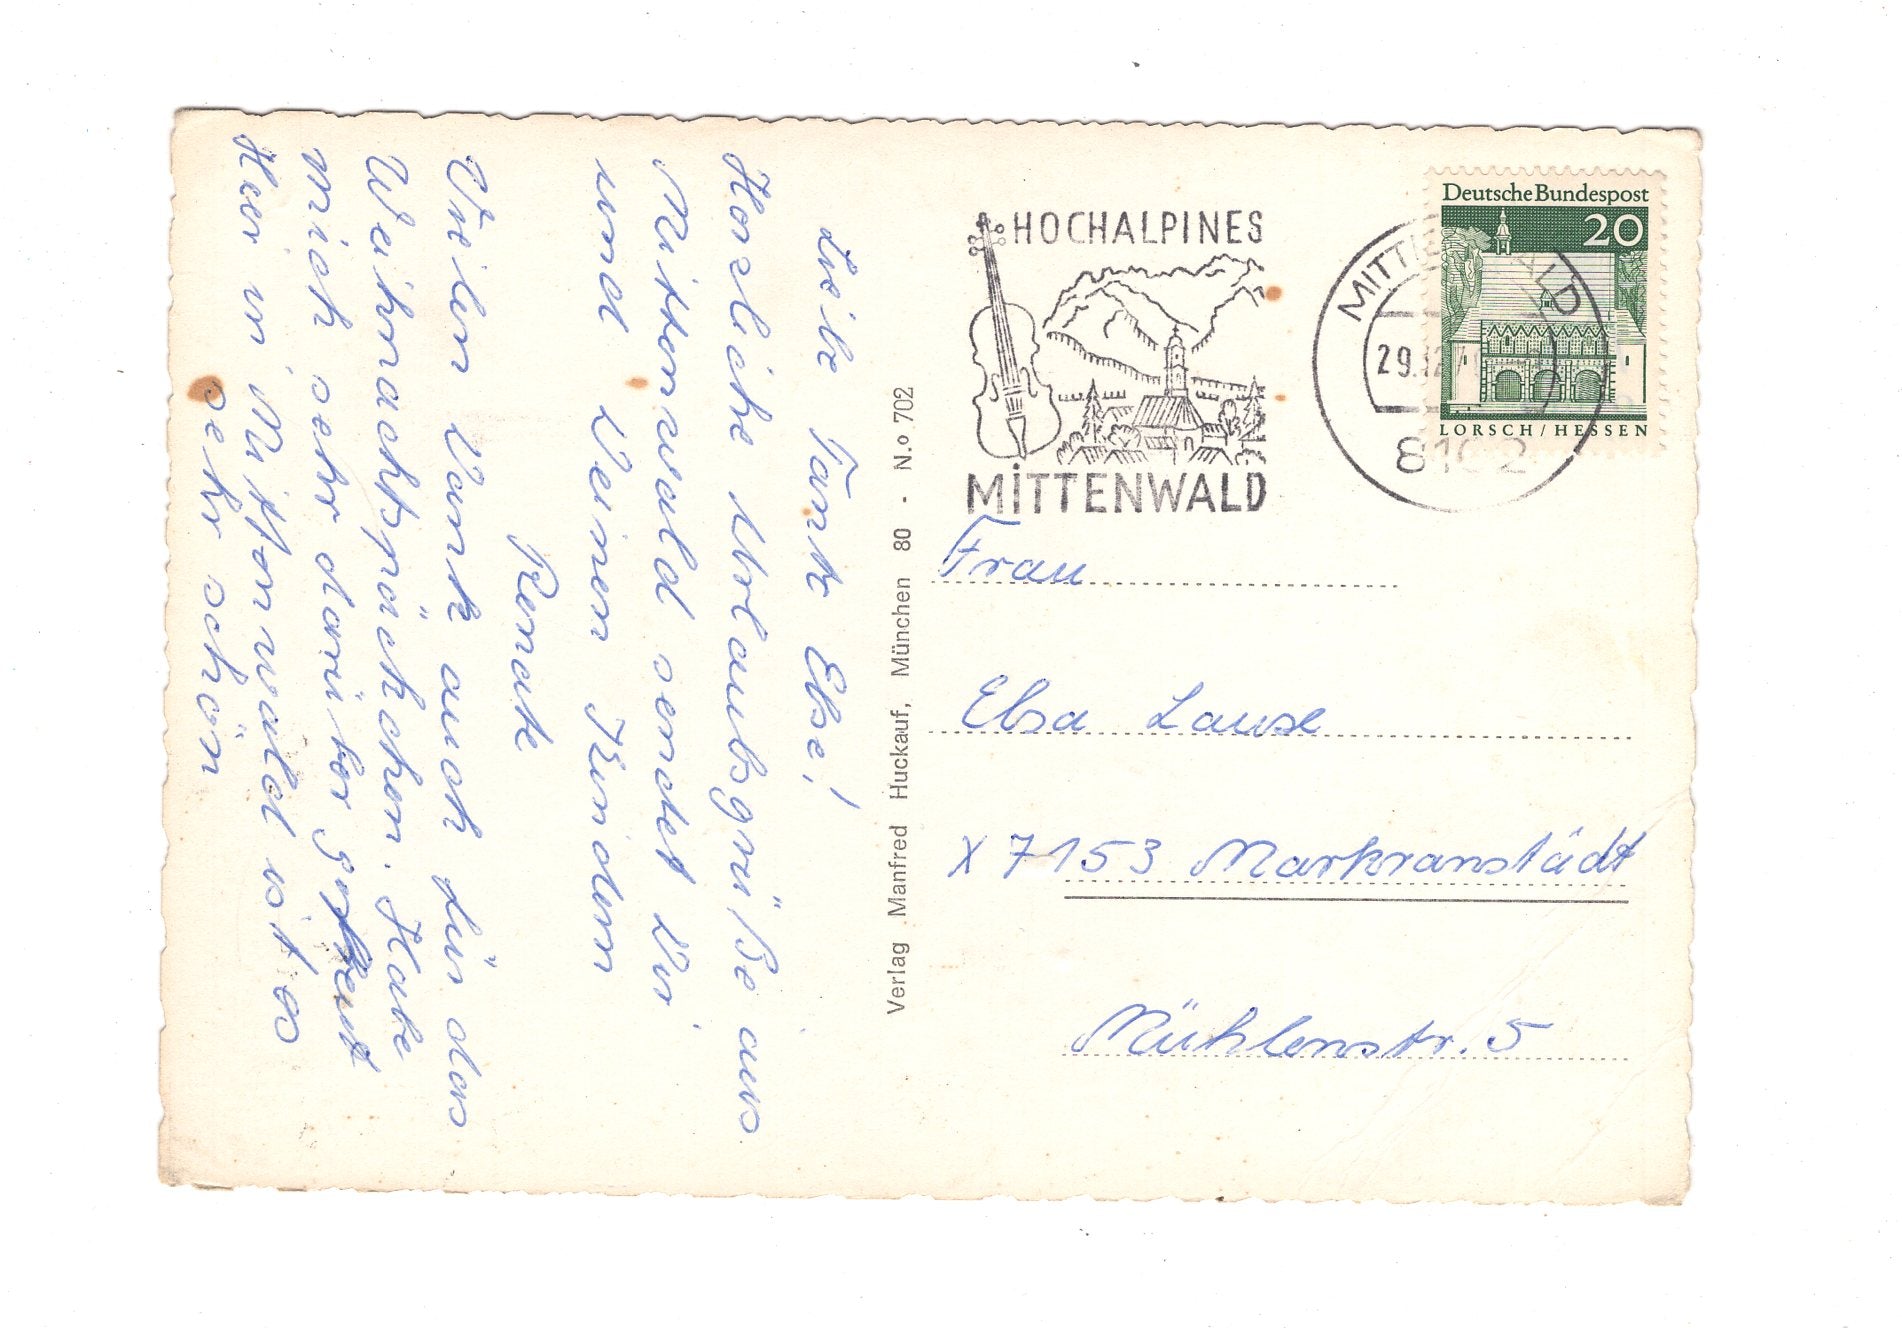 Liebe Tante Else!
Herzliche Urlaubsgrüße aus
Mittenwald sendet Dir
und Deinen Kindern
Renate
Vielen Dank auch für das
Weihnachtspäckchen. Habe
mich sehr darüber gefreut
Hier in Mittenwald ist es
sehr schön
Verlag Manfred Huckauf, München 80 - N.º 702
HOCHALPINES
MITTENWALD
MITTENWALD
29.12.71
8102
Deutsche Bundespost
20
LORSCH / HESSEN
Frau
Elsa Lause
X 7153 Markranstädt
Mühlenstr. 5